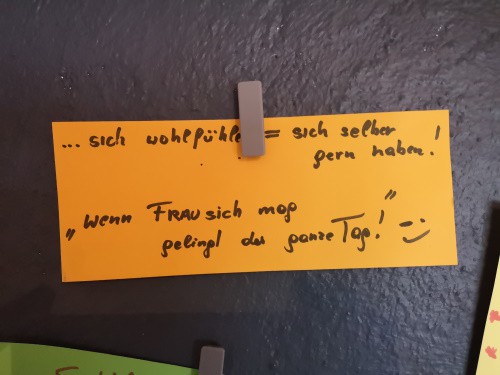 ... sich wohlfühle = sich selber
gern haben!
„Wenn FRAU sich mag
gelingt der ganze Tag!"